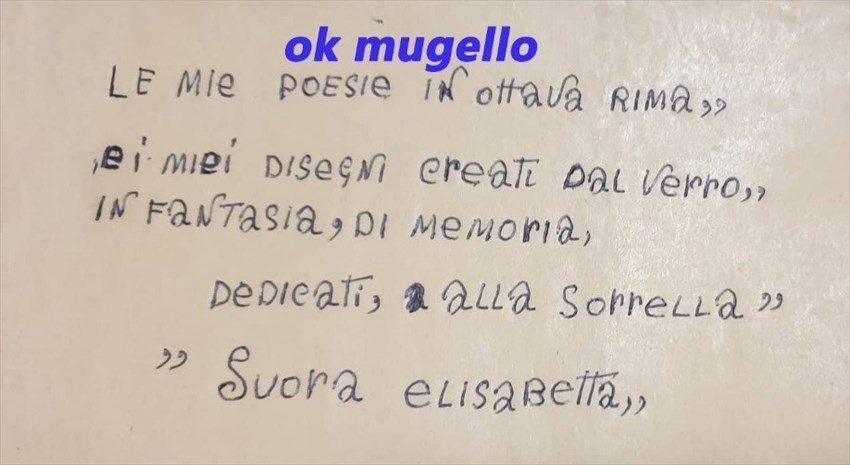 ok mugello
LE MIE POESIE IN OTTAVA RIMA,,
,e i MIEI DISEGNI CREATI DAL VERRO,,
IN FANTASIA, DI MEMORIA,
DEDICATI, a ALLA SORRELLA ,,
,, SUORA ELISABETTA,,